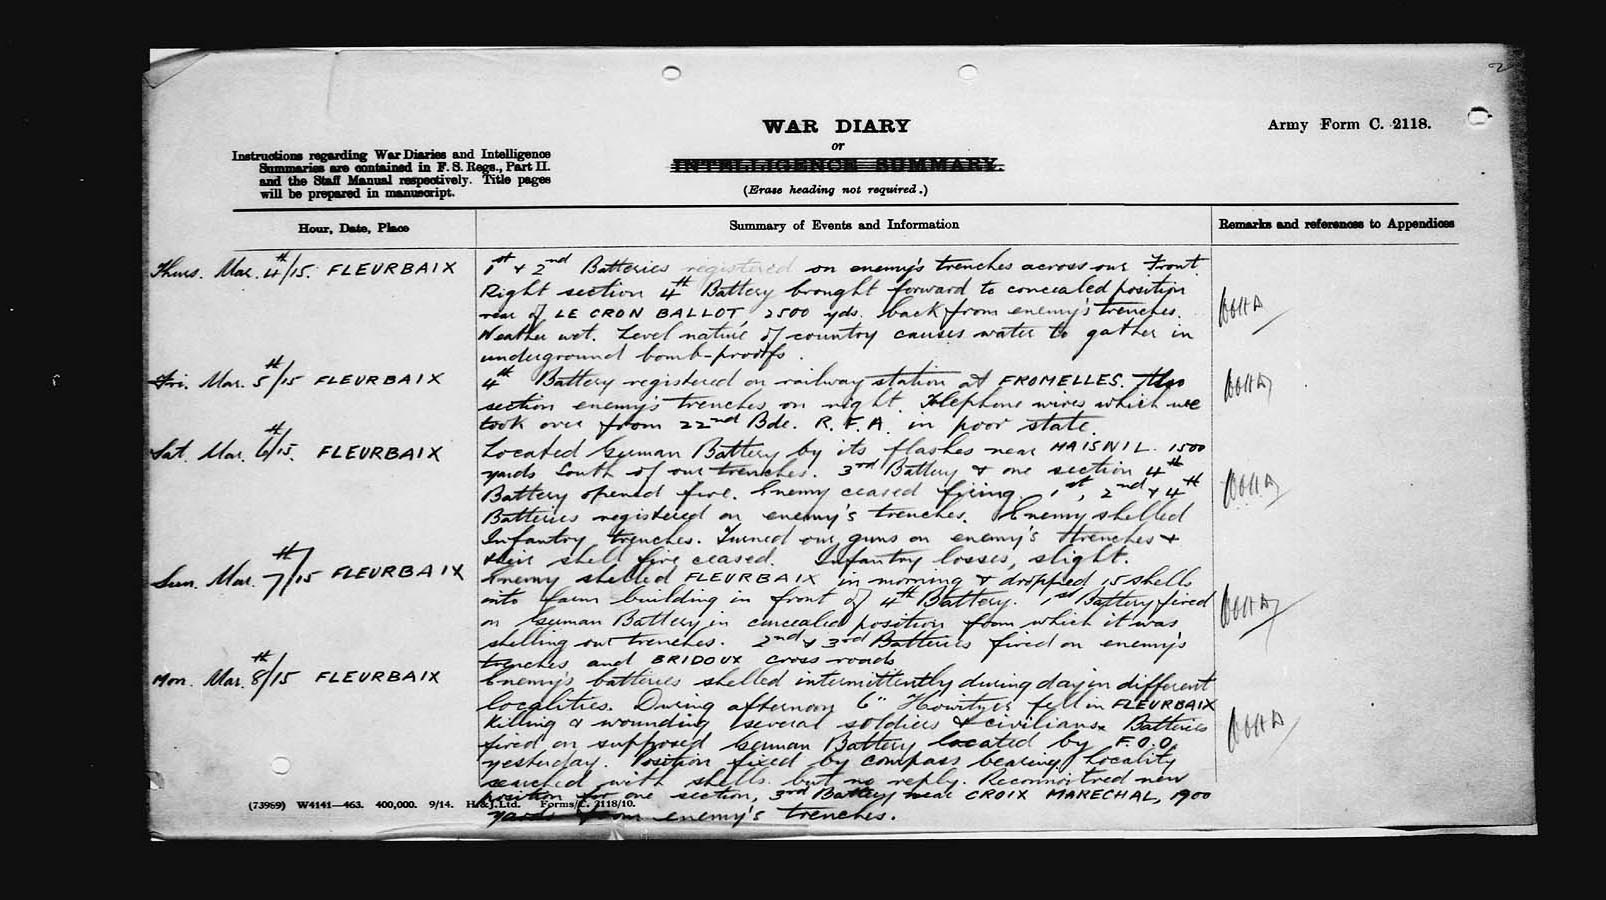 2
WAR DIARY
or
INTELLIGENCE SUMMARY.
(Erase heading not required.)
Army Form C. 2118.
Instructions regarding War Diaries and Intelligence
Summaries are contained in F. S. Regs., Part II.
and the Staff Manual respectively. Title pages
will be prepared in manuscript.
Hour, Date, Place
Summary of Events and Information
Remarks and references to Appendices
Thurs. Mar. 4th/15. FLEURBAIX
1st & 2nd Batteries registered on enemy's trenches across our Front.
Right section 4th Battery brought forward to concealed position
rear of LE CRON BALLOT, 2500 yds. back from enemy's trenches.
Weather wet. Level nature of country causes water to gather in
underground bomb-proofs.
Fri. Mar. 5th/15 FLEURBAIX
4th Battery registered on railway station at FROMELLES. Also
section enemy's trenches on right. Telephone wires which we
took over from 22nd Bde. R.F.A. in poor state.
Sat. Mar. 6th/15. FLEURBAIX
Located German Battery by its flashes near MAISNIL. 1500
yards South of our trenches. 3rd Battery & one section 4th
Battery opened fire. Enemy ceased firing. 1st, 2nd & 4th
Batteries registered on enemy's trenches. Enemy shelled
Infantry trenches. Turned our guns on enemy's trenches &
their shell fire ceased. Infantry losses, slight.
Sun. Mar. 7th/15 FLEURBAIX
Enemy shelled FLEURBAIX in morning & dropped 15 shells
into farm building in front of 4th Battery. 1st Battery fired
on German Battery in concealed position from which it was
shelling our trenches. 2nd & 3rd Batteries fired on enemy's
trenches and BRIDOUX cross-roads
Mon. Mar. 8th/15 FLEURBAIX
Enemy's batteries shelled intermittently during day in different
localities. During afternoon 6" Howitzers fell in FLEURBAIX
killing & wounding several soldiers & civilians. Batteries
fired on supposed German Battery located by F.O.O.
yesterday. Position fixed by compass bearing. Locality
searched with shells. but no reply. Reconnoitred new
position for one section, 3rd Battery near CROIX MARECHAL, 1900
yards from enemy's trenches.
(73989) W4141—463. 400,000. 9/14. H.&J.Ltd. Forms/C. 2118/10.